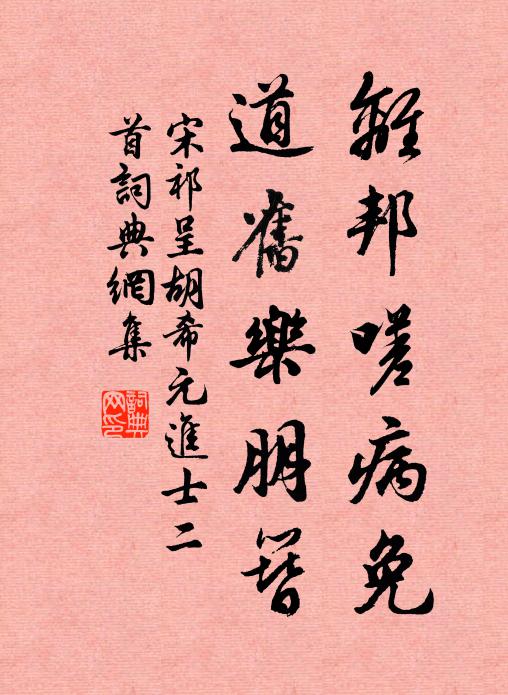 離邦嗟病免
道舊樂朋簪
宋祁呈胡希元進士二
首詞典網集
詞典
网印